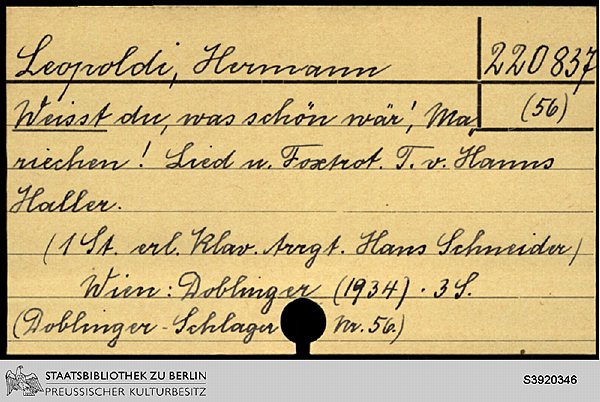 Leopoldi, Hermann
220837
(56)
Weisst du, was schön wär', Ma-
riechen! Lied u. Foxtrot. T. v. Hanns
Haller.
(1 St. erl. Klav. Arrgt. Hans Schneider)
Wien: Doblinger (1934). 3 S.
(Doblinger-Schlager Nr. 56.)
STAATSBIBLIOTHEK ZU BERLIN
PREUSSISCHER KULTURBESITZ
S3920346